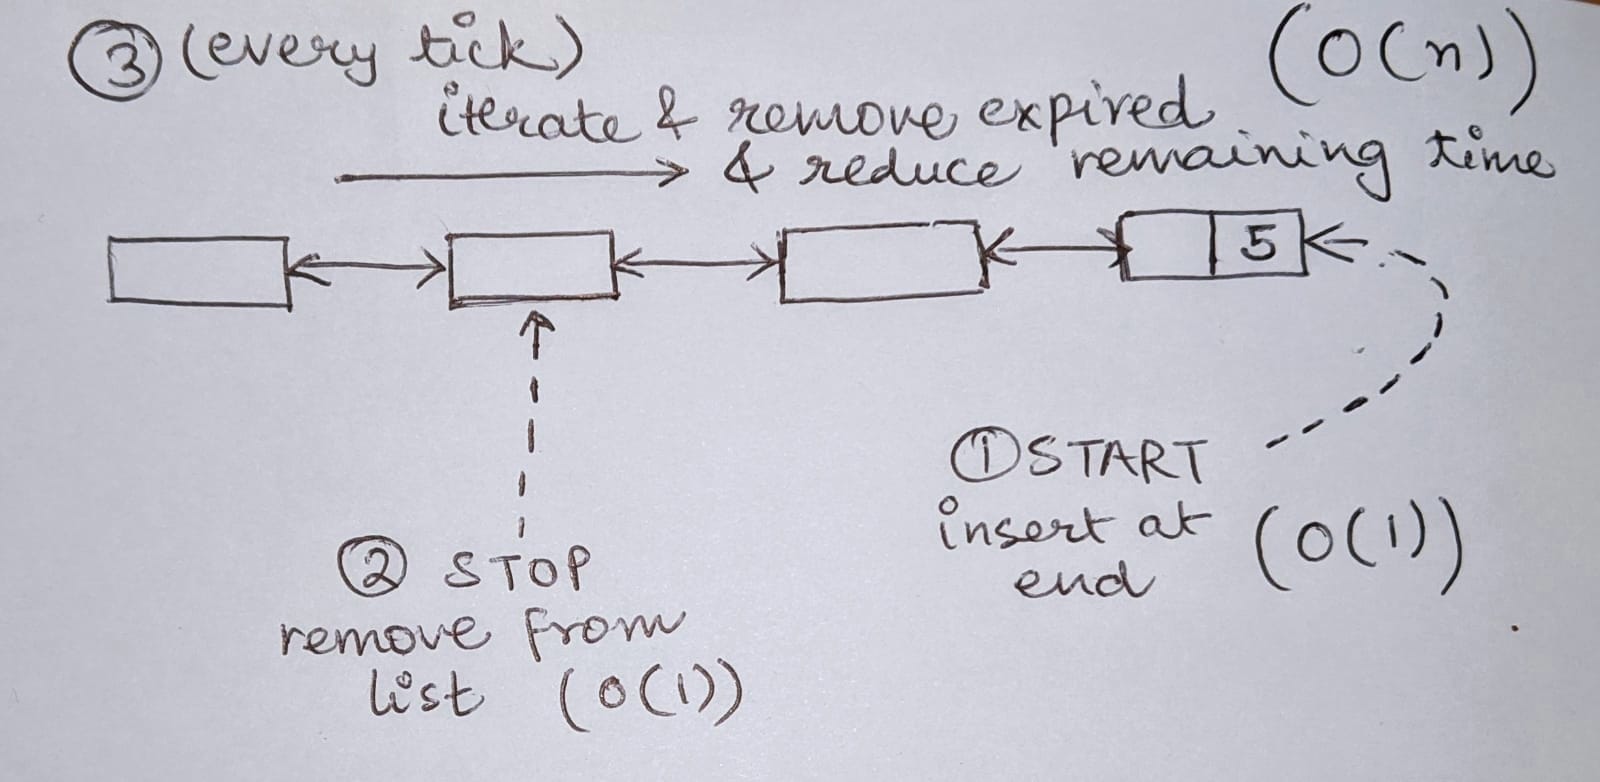 ③ (every tick) (O(n))
iterate & remove expired
& reduce remaining time
5
① START
insert at (O(1))
end
② STOP
remove from
list (O(1))